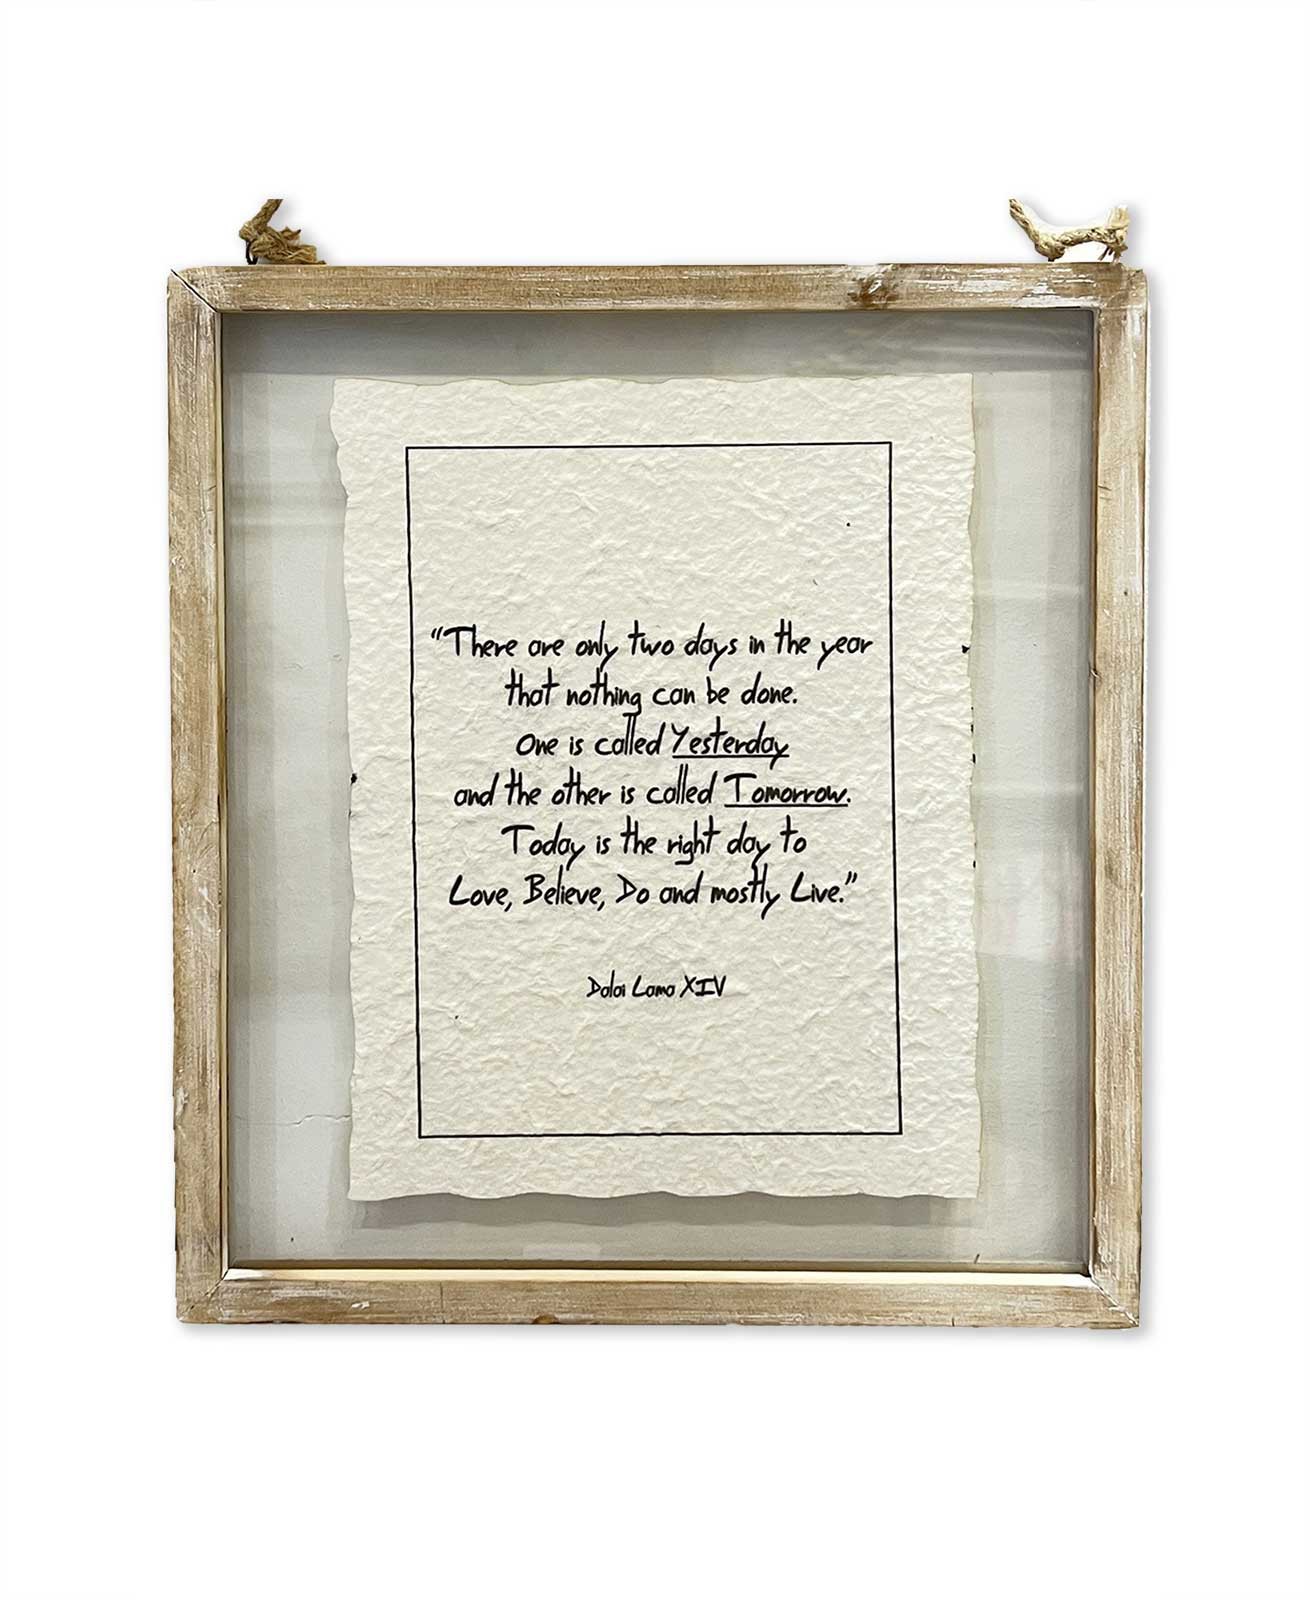 “There are only two days in the year
that nothing can be done.
One is called Yesterday
and the other is called Tomorrow.
Today is the right day to
Love, Believe, Do and mostly Live.”
Dalai Lama XIV